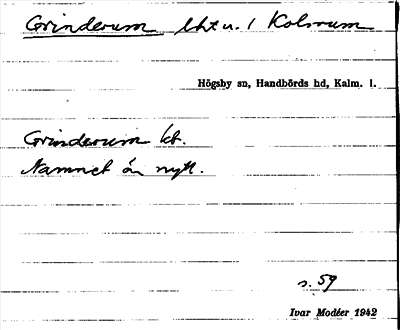 Grinderum lht u. 1 Kolsrum
Högsby sn, Handbörds hd, Kalm. l.
Grinderum kt.
Namnet är nytt.
s. 59
Ivar Modéer 1942